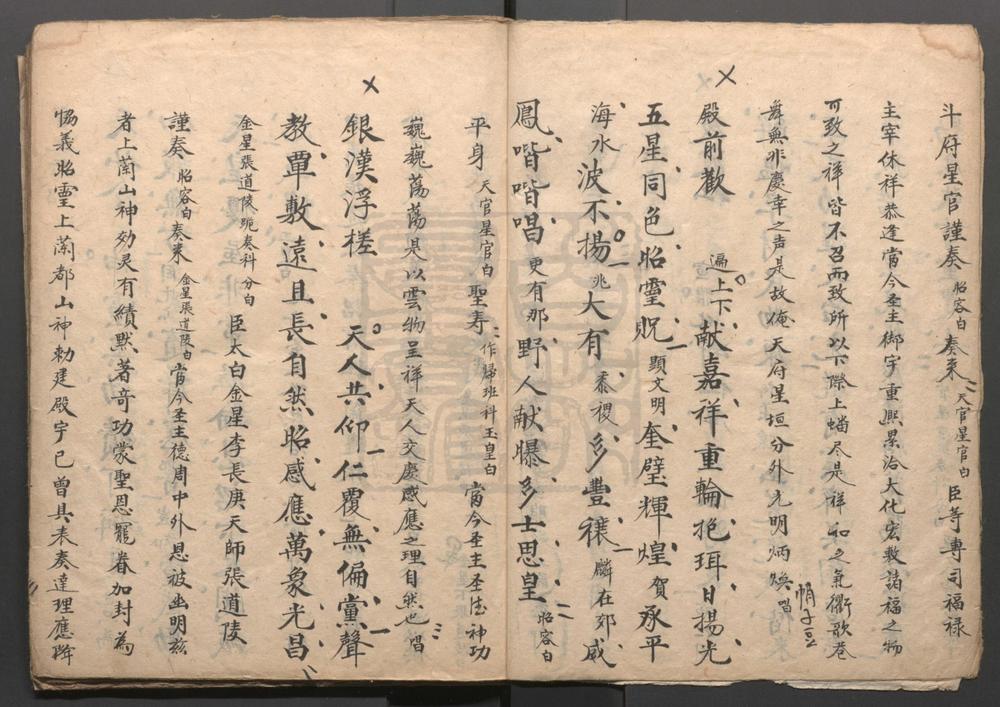 斗府星官謹奏 昭容白 奏来 天官星官白 臣等專司福禄
主宰休祥恭逢當今圣主御宇重熙累洽大化宏敷諸福之物
可致之祥皆不召而致所以下際上蟠尽是祥和之氣衢歌巷
舞無非慶幸之吉是故俺天府星垣分外光明炳煥 唱 帽子豆
殿前歡 遍上下献嘉祥重輪抱珥日揚光
五星同色昭靈貺 顯文明奎璧輝煌 賀承平
海水波不揚 兆大有 黍稷多豐穰 麟在郊咸
鳳喈喈唱 更有那野人献曝多士思皇 昭容白
平身 天官星官白 聖寿 作歸班科玉皇白 當今圣主圣德神功
巍巍蕩蕩是以雲物呈祥天人交慶感應之理自然也 唱
銀漢浮槎 天人共仰仁覆無偏黨聲
教覃敷遠且長自然昭感應萬象光昌
金星張道陵跪奏科分白 臣太白金星李長庚天師張道陵
謹奏 昭容白 奏来 金星張道陵白 當今圣主德周中外恩被幽明兹
者上蘭山神効灵有績默著奇功蒙聖恩寵眷加封為
恊義昭靈上蘭都山神勅建殿宇已曾具表奏達理應